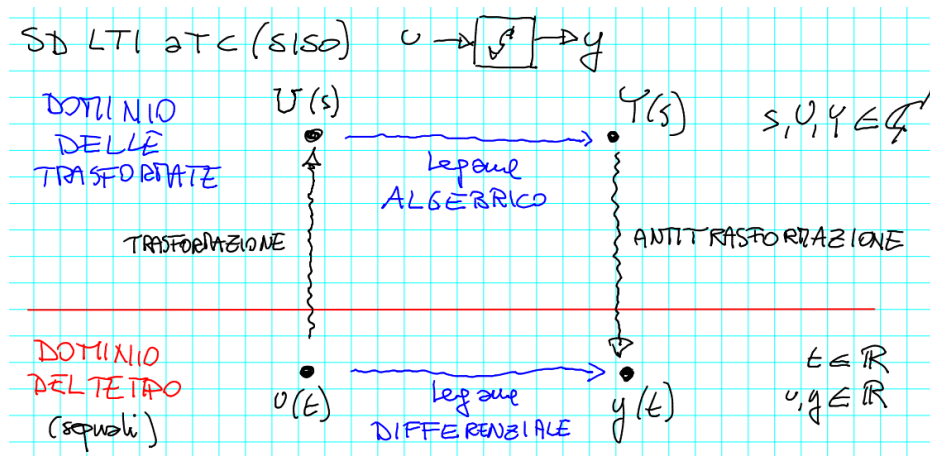 SD LTI a TC (SISO) u → [S] → y
DOMINIO
DELLE
TRASFORMATE
U(s)
Y(s)
s, U, Y ∈ ℂ
legame
ALGEBRICO
TRASFORMAZIONE
ANTITRASFORMAZIONE
DOMINIO
DEL TEMPO
(segnali)
u(t)
legame
DIFFERENZIALE
y(t)
t ∈ ℝ
u, y ∈ ℝ